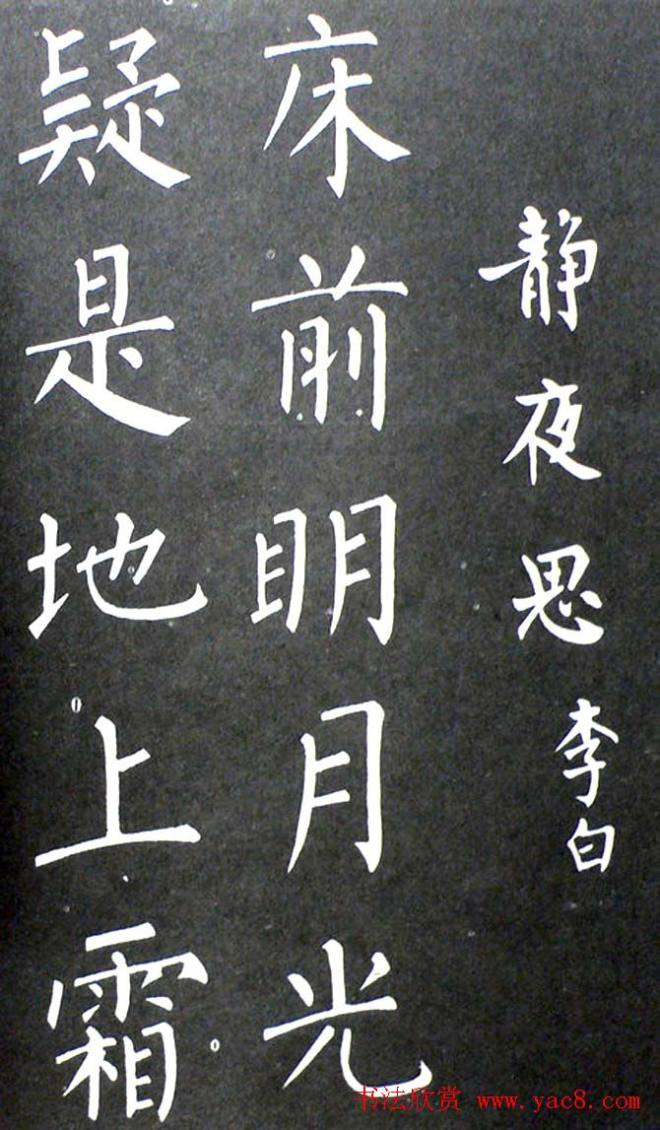 静夜思 李白
床前明月光
疑是地上霜
书法欣赏 www.yac8.com